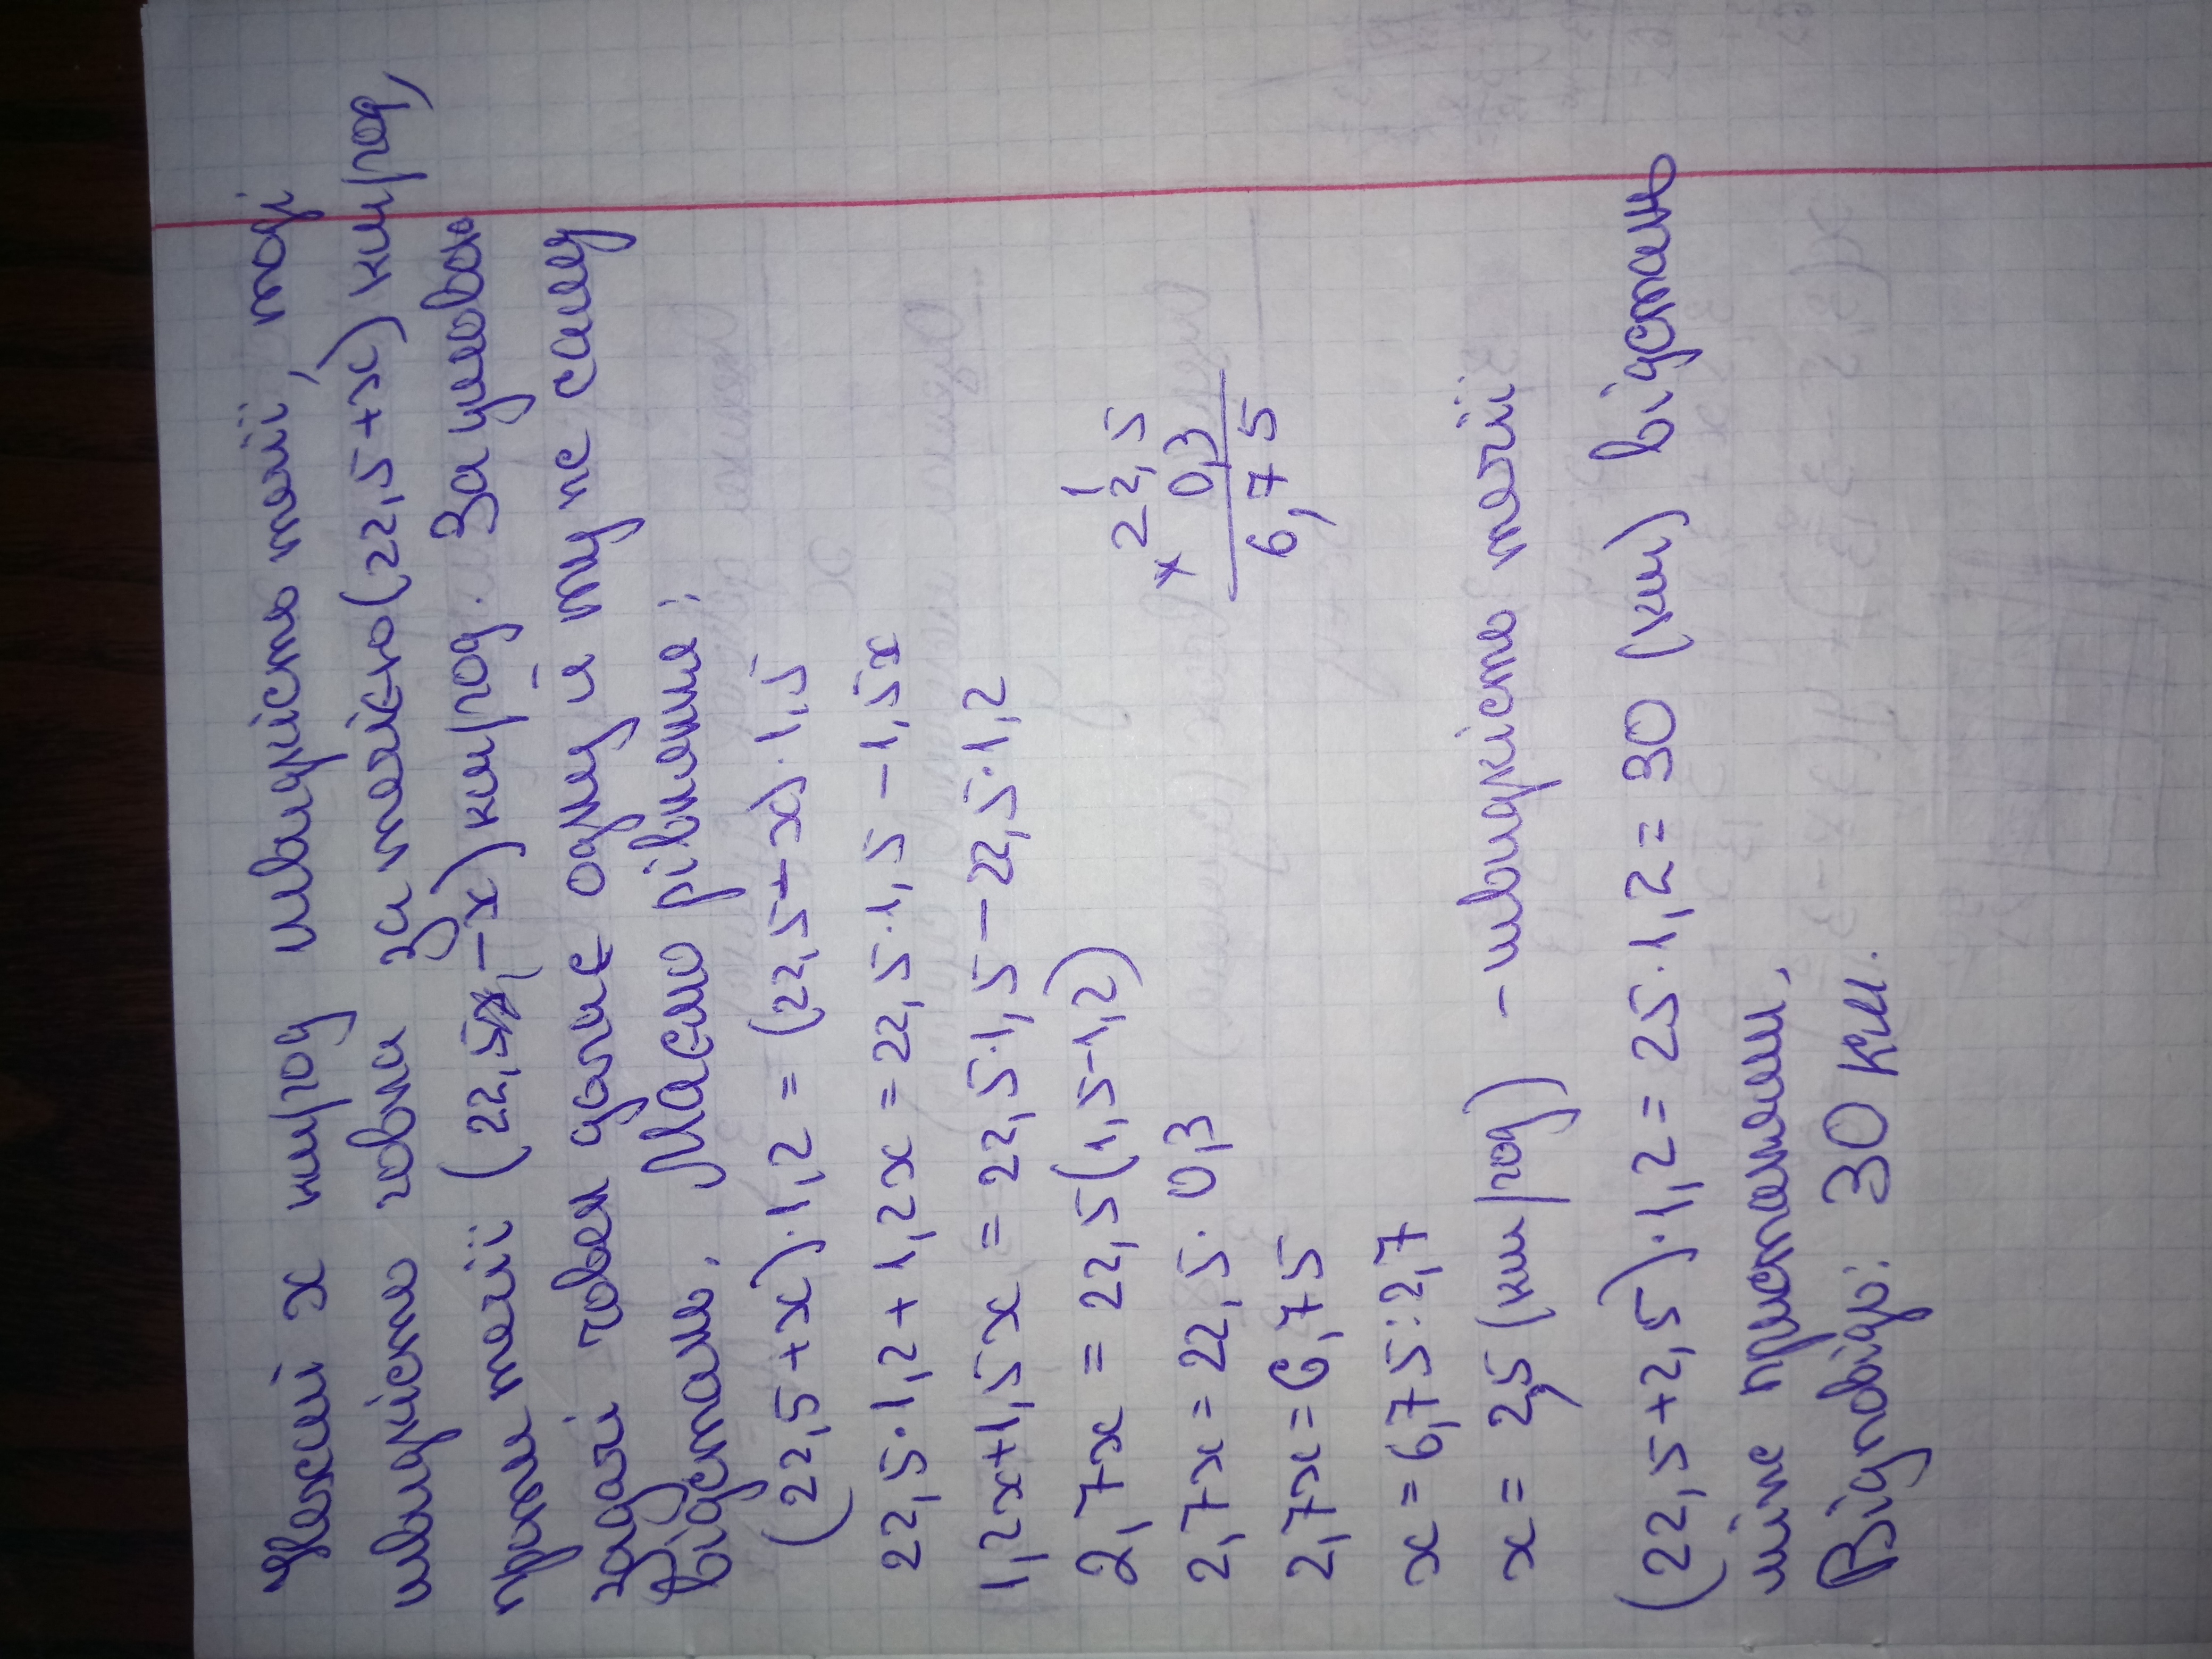 Нехай х км/год швидкість течії, тоді
швидкість човна за течією (22,5+х) км/год,
проти течії (22,5-х) км/год. За умовою
задачі човен долає одну й ту же саму
відстань. Маємо рівняння:
(22,5+х)·1,2 = (22,5-х)·1,5
22,5·1,2+1,2х = 22,5·1,5-1,5х
1,2х+1,5х = 22,5·1,5-22,5·1,2
2,7х = 22,5(1,5-1,2)
2,7х = 22,5·0,3
2,7х = 6,75
х = 6,75:2,7
х = 2,5 (км/год) - швидкість течії
1
× 22,5
0,3
6,75
(22,5+2,5)·1,2 = 25·1,2 = 30 (км) відстань
між пристанями,
Відповідь: 30 км.